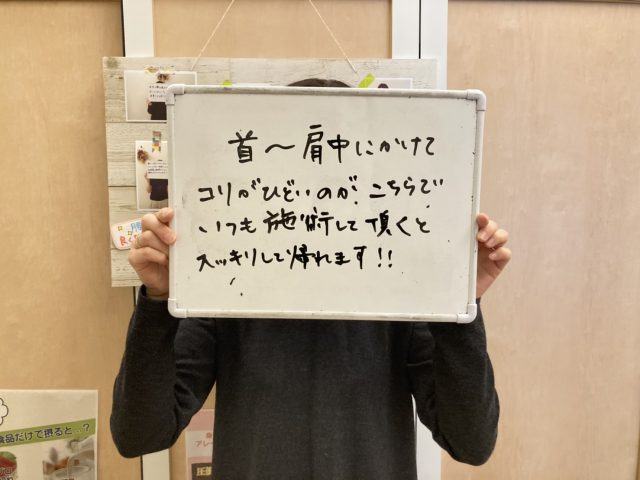 首〜肩中にかけて
コリがひどいのが、こちらで
いつも施術して頂くと
スッキリして帰れます!!
食品だけで摂ると..?
アレ